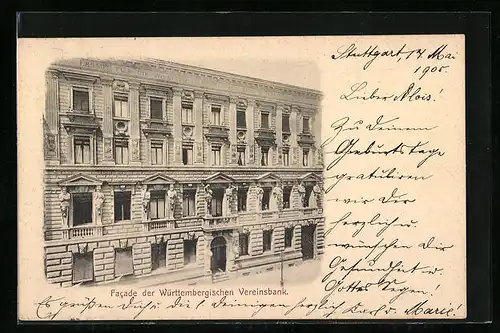 Stuttgart, 14 Mai
1905.
Lieber Alois!
Zu Deinem
Geburtstage
gratuliren
wir Dir
herzlich u.
wünschen Dir
Gesundheit u.
Gottes Segen!
Façade der Württembergischen Vereinsbank.
Es grüßen Dich die l. Deinigen herzlich Karl u. Marie!